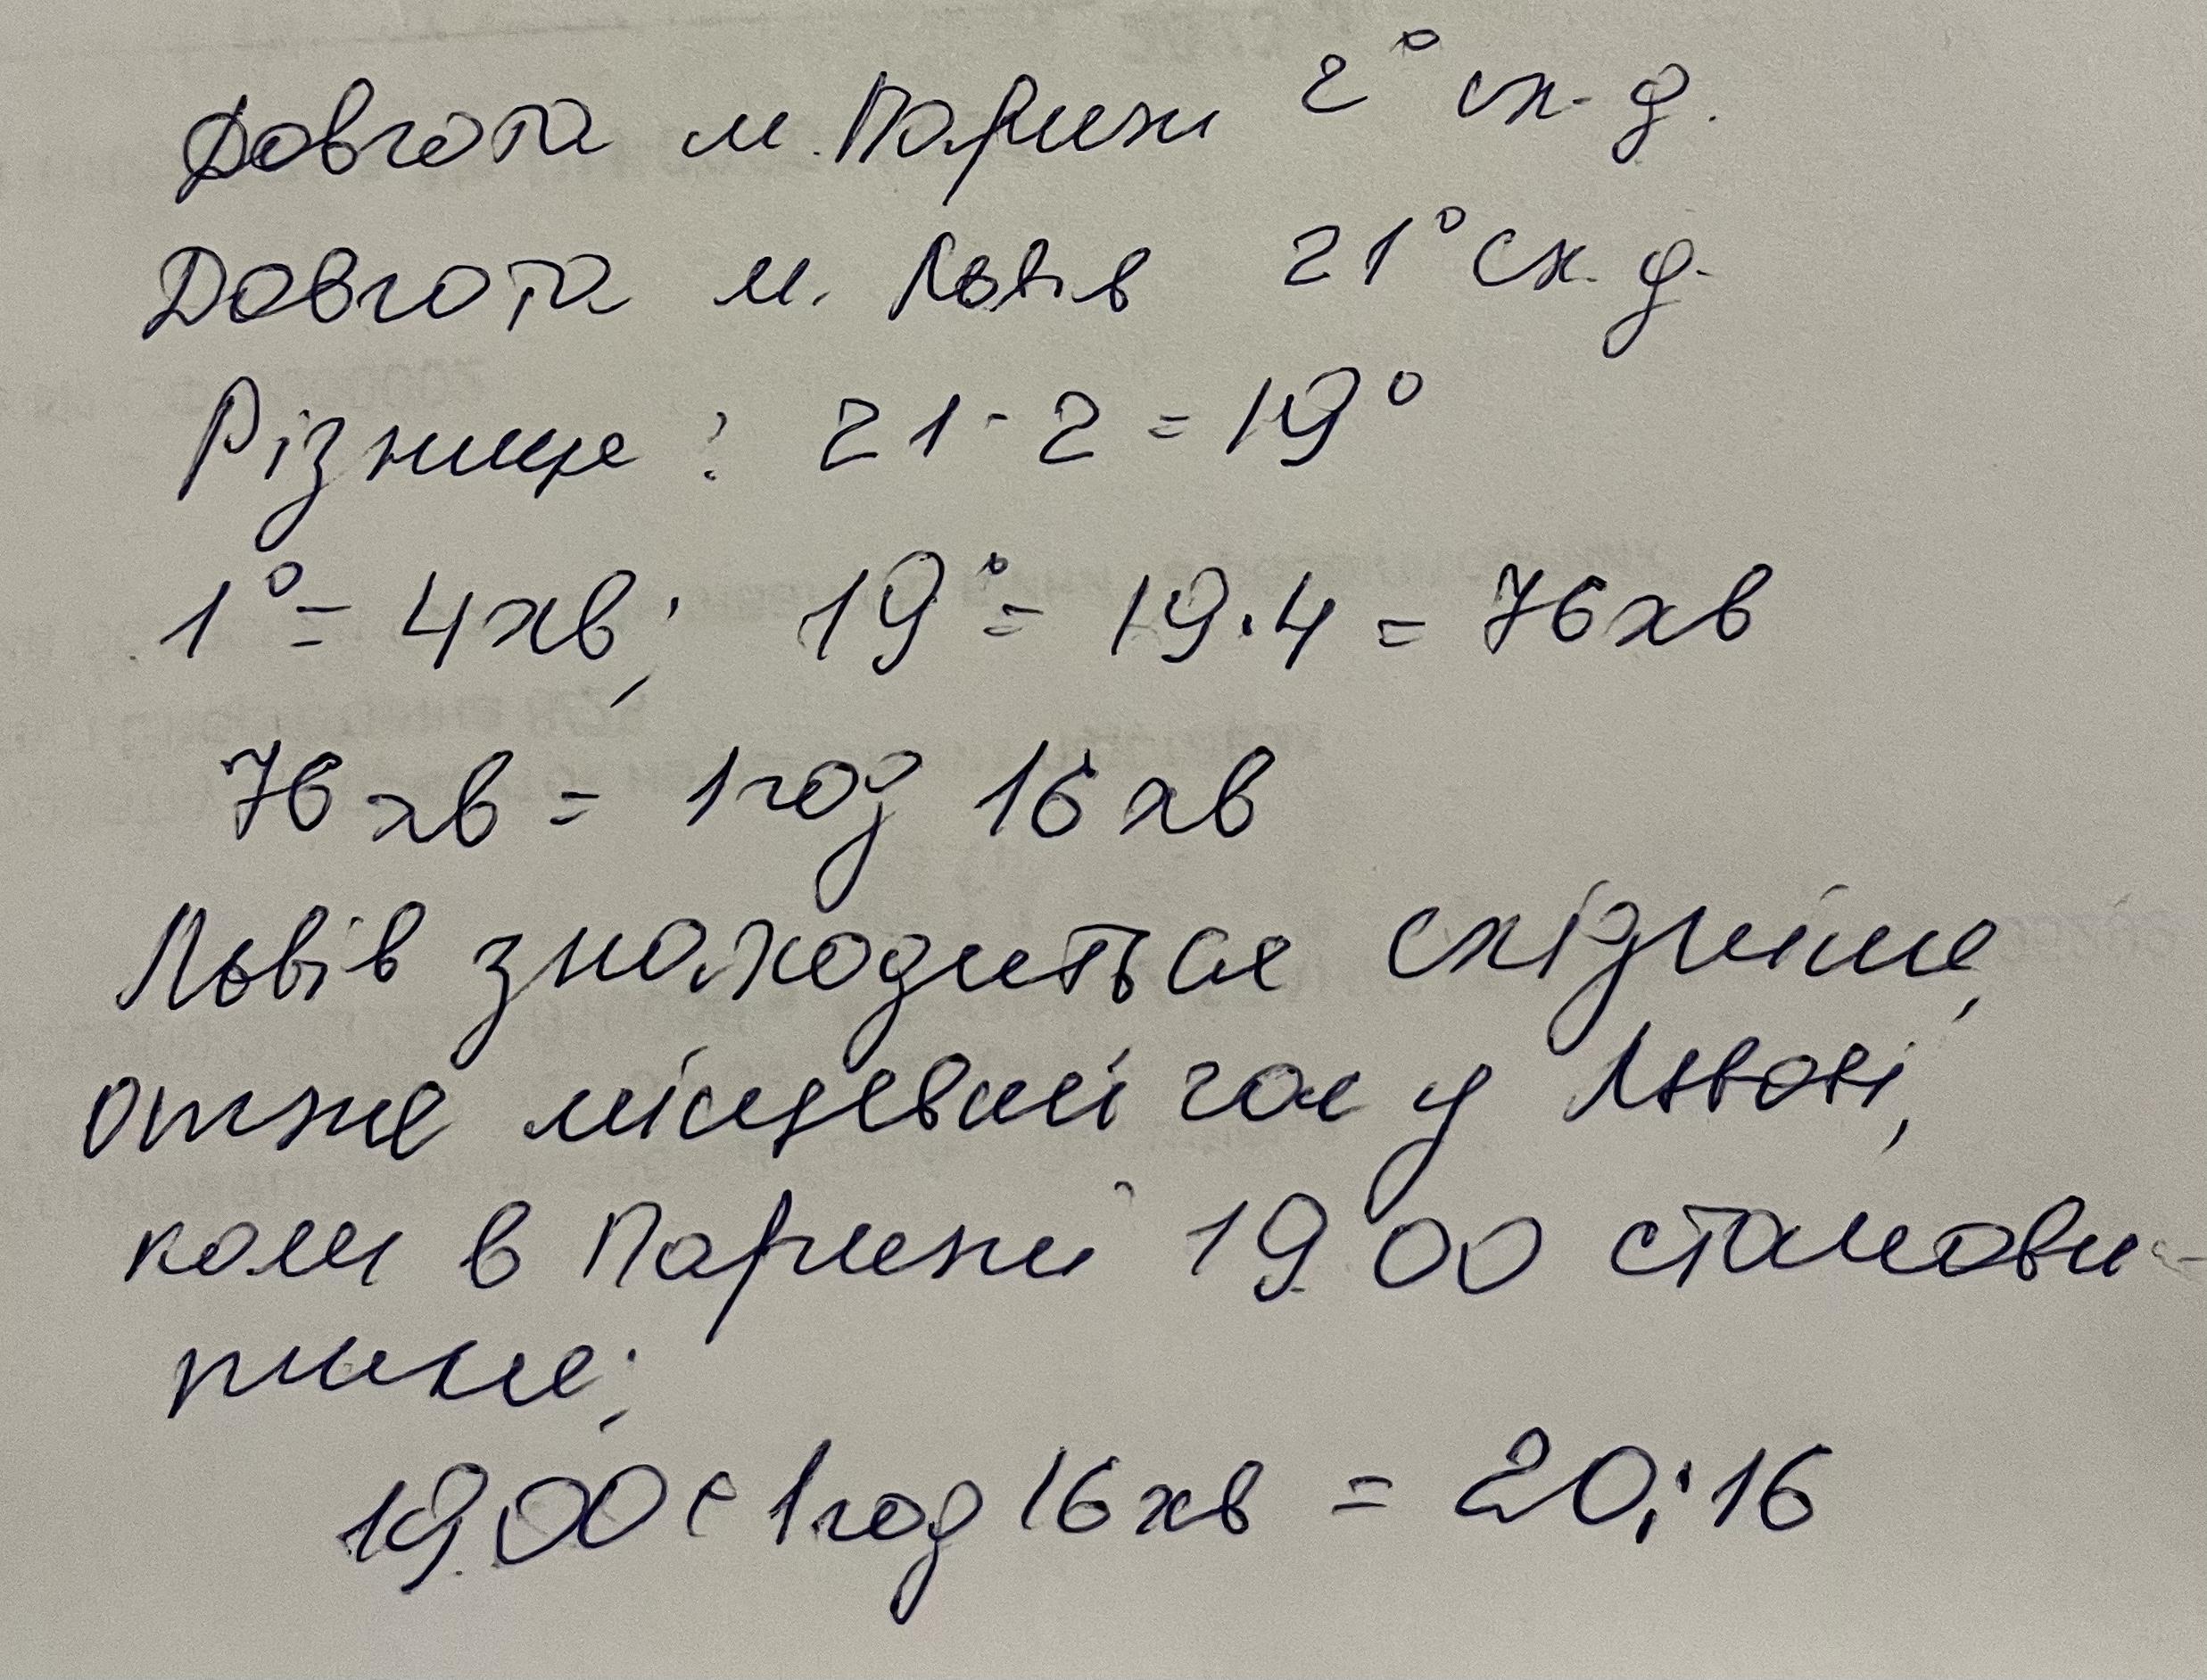 Довгота м. Париж 2° сх. д.
Довгота м. Львів 21° сх. д.
Різниця: 21 - 2 = 19°
1° = 4 хв; 19° = 19·4 = 76 хв
76 хв = 1 год 16 хв
Львів знаходиться східніше,
отже місцевий час у Львові,
коли в Парижі 19 00 станови-
тиме;
19.00 + 1 год 16 хв = 20:16